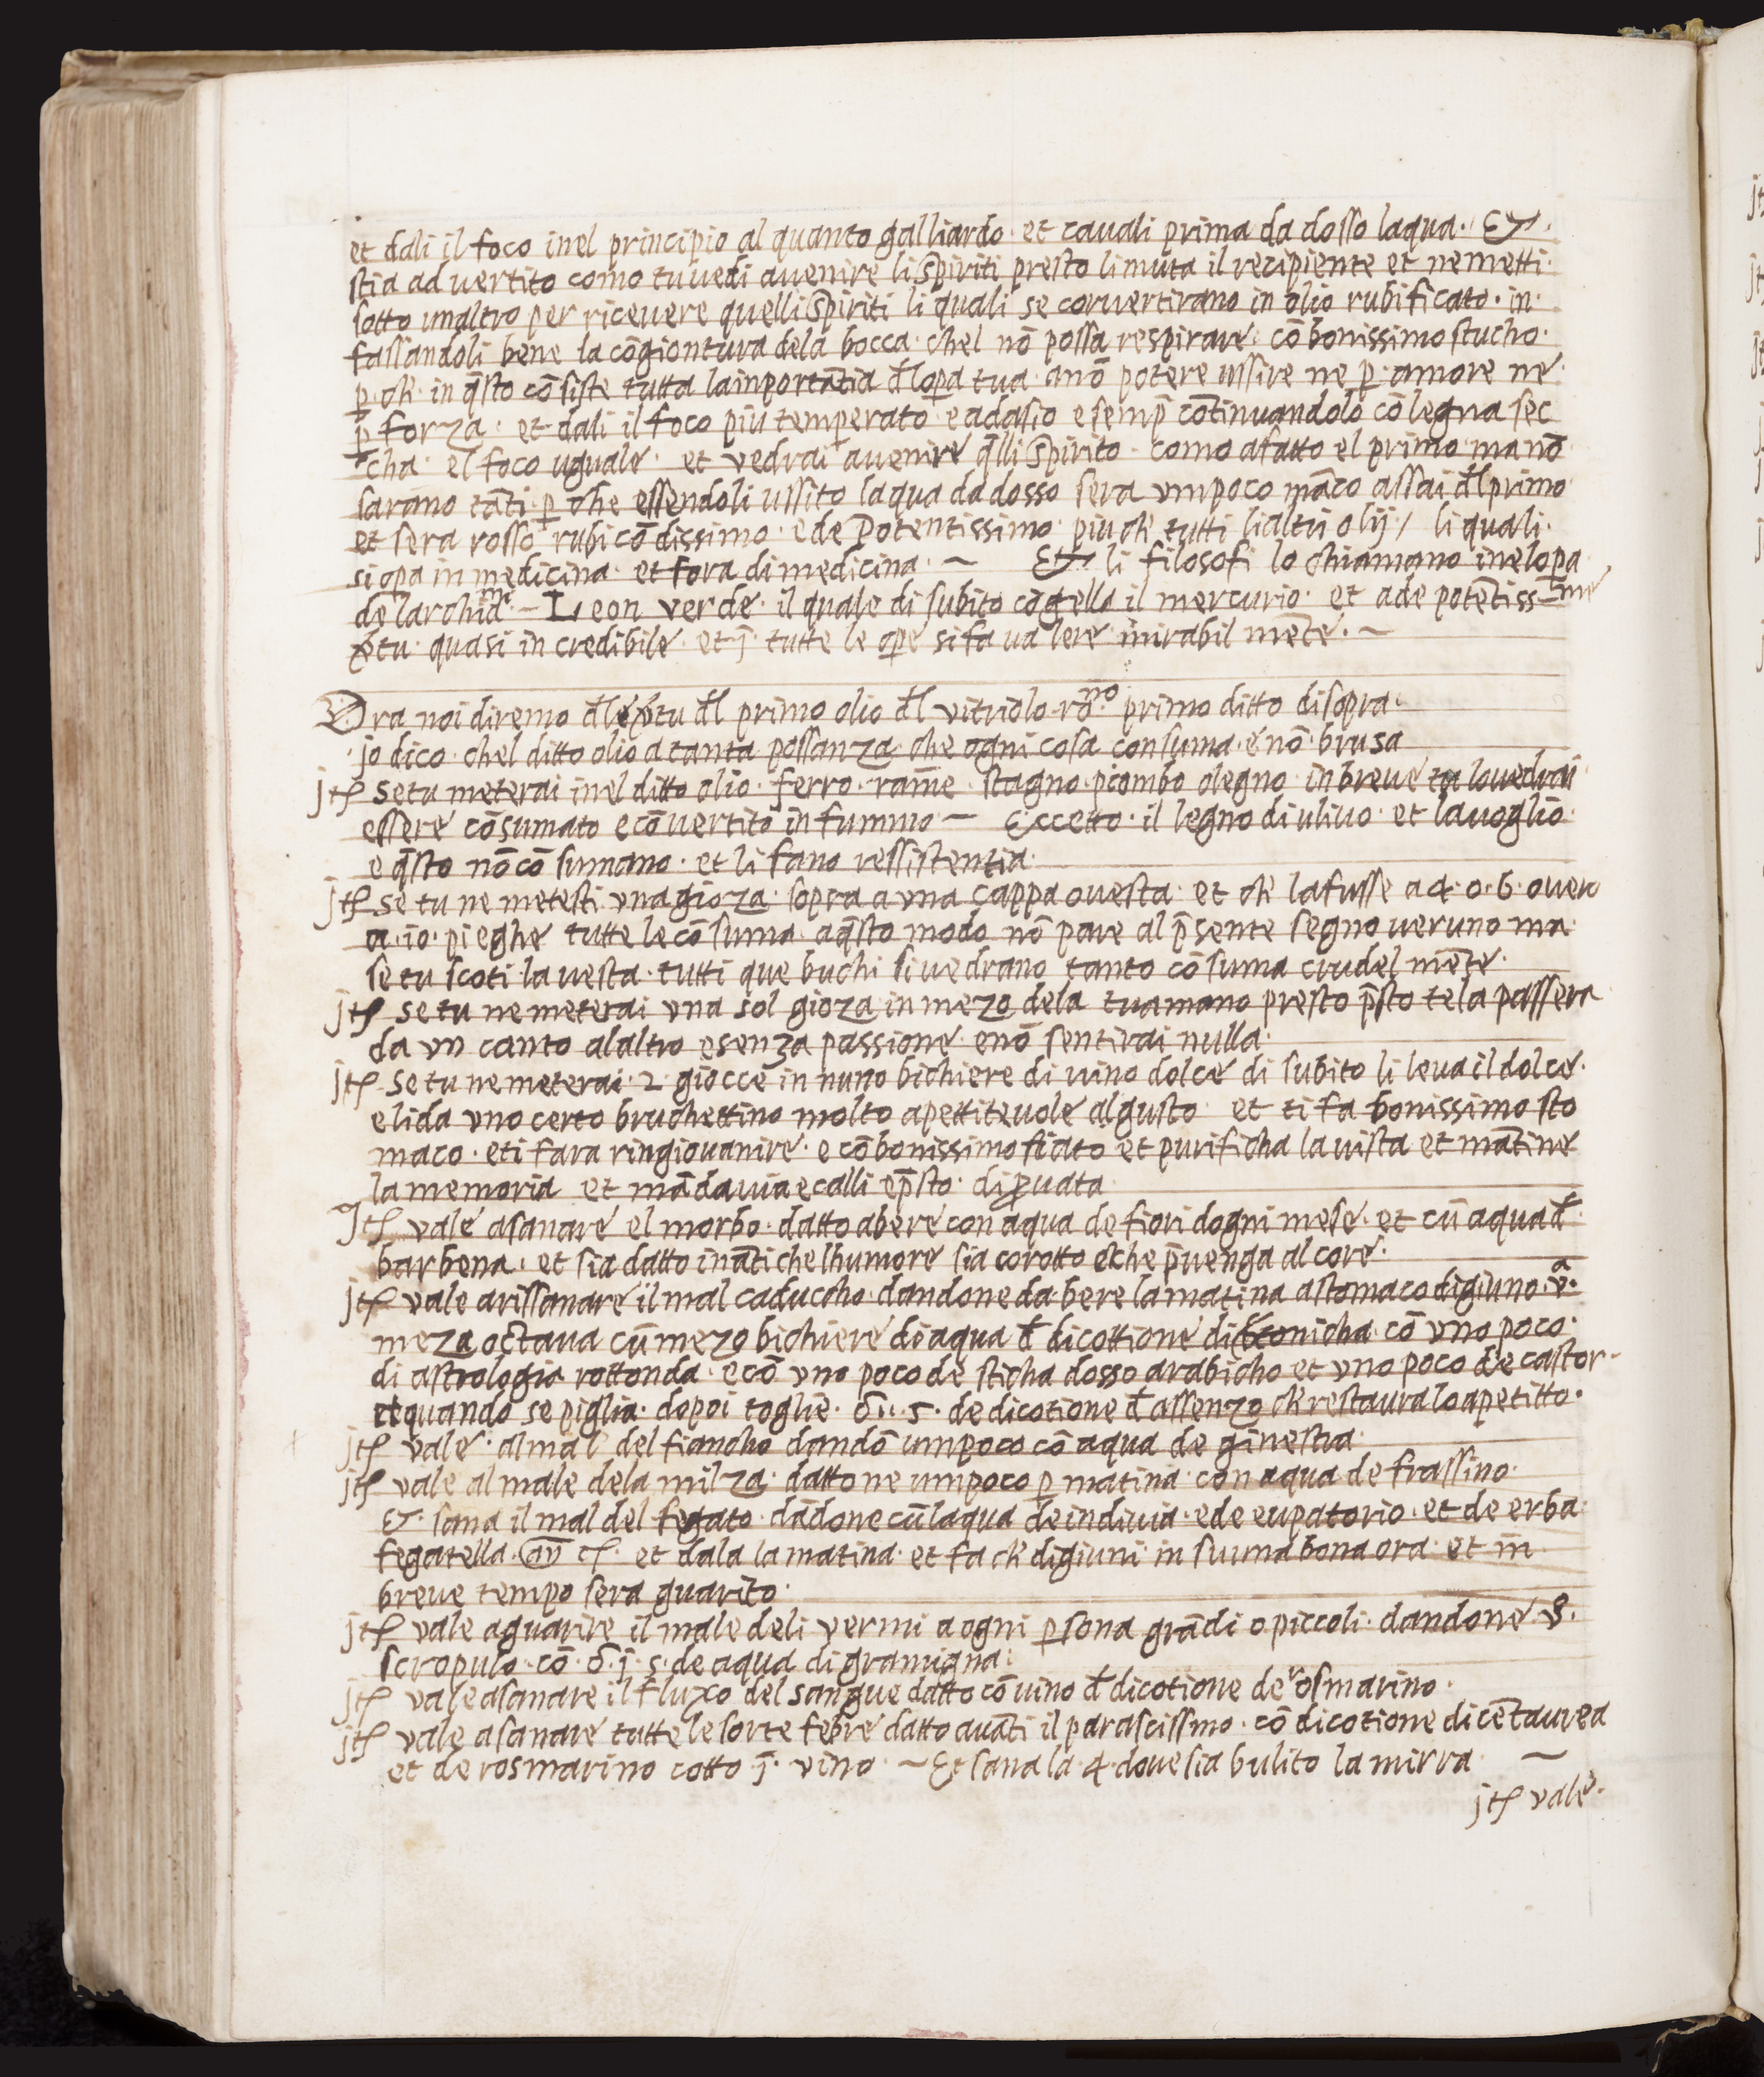 et dali il foco inel principio al quanto galliardo · et cauali prima da dosso laqua · Et ·
stia ad vertito como tu uedi auenire li spiriti presto li muta il recipiente et ne metti ·
sotto unaltro per riceuere quelli spiriti li quali se convertirano in olio rubificato · in ·
fassandoli bene la cōgiontura dela bocca · chel nō possa respirare · cō bonissimo stucho ·
p̱ · ch' in q̄sto cōsiste tutta la inportātia đ lop̱a tua · a nō potere ussire ne p̱ · amore ne ·
p̱ forza · et dali il foco piu temperato e adasio e semp̄ cōtinuandolo cō legna sec
cha · el foco uguale · et vedrai auenire q̄lli spirito · como a fatto el primo ma nō
sarano tāti · p̱ che essendoli ussito laqua da dosso sera vn poco māco assai đl primo
et sera rosso rubicōdissimo · e de potentissimo · piu ch' tutti li altri olij · / li quali ·
si op̱a in medicina · et fora di medicina · ~ Et li filosofi lo chiamano inelop̱a
de larchid.mi – Leon verde · il quale di subito cōgella il mercurio · et a de potētiss–ime
v̄tu · quasi in credibile · et j̄ · tutte le op̱e si fa ualere mirabil mēte · ~
Ora noi diremo đ le v̄tu đl primo olio đl vitriolo rō.no primo ditto disopra ·
jo dico · chel ditto olio a tanta possanza · che ogni cosa consuma · e nō · brusa
jtꝭ se tu meterai inel ditto olio · ferro · rame · stagno · piombo o legno · in breue tu lo uedrai
essere cōsumato e cōuertito in fummo – Eccetto · il legno di uliuo · et la uoglio ·
e q̄sto nō cōsumano · et li fano ressistentia ·
jtꝭ se tu ne metesti vna gioza · sopra a vna cappa o uesta · et ch' la fusse a 4 · o · 6 · ouero
a · 10 · pieghe tutte le cōsuma · a q̄sto modo nō pare al p̄sente segno ueruno ma ·
se tu scoti la uesta · tutti que buchi si uedrano tanto cōsuma crudel mēte ·
jtꝭ se tu ne meterai vna sol gioza in mezo dela tua mano presto p̄sto te la passera
da vn canto alaltro e senza passione · e nō sentirai nulla ·
jtꝭ se tu ne meterai · 2 · giocce in nuno bichiere di uino dolce di subito li leua il dolce ·
e li da vno certo bruchettino molto apettiteuole al gusto · et ti fa bonissimo sto
maco · e ti fara ringiouanire · e cō bonissimo fiato et purificha la uista et mātine
la memoria et māda uia e calli e p̄sto · di p̱uata
Jtꝭ vale a sanare el morbo · datto a bere con aqua de fiori dogni mese · et cū aqua đ ·
barbena · et sia datto in āti chel humore sia corotto e che p̱uenga al core ·
jtꝭ vale a rissanare il mal caduccho · dandone da bere la matina a stomaco digiuno · v.a
meza octaua cū mezo bichiere di aqua đ dicottione di betonicha · cō vno poco ·
di astrologia rottonda · e cō vno poco de sticha dosso arabicho et vno poco de castor –
et quando se piglia · dopoi toglie · ō ij · s · de dicotione đ assenzo ch' restaura lo apetitto ·
jtꝭ vale · al mal del fiancho dandō un poco cō aqua de ginestra ·
jtꝭ vale al male dela milza · datto ne un poco p̱ matina · con aqua de frassino ·
Et · sana il mal del fegato · dādone cū laqua de indiuia · e de eupatorio · et de erba
fegatella · an̄ · et dala la matina · et fa ch' digiuni in su una bona ora · et in
breue tempo sera guarito ·
jtꝭ vale a guarire il male deli vermi a ogni p̱sona grādi o piccoli · dandone
scropulo · cō · ō · j · s · de aqua di gramigna ·
jtꝭ vale a sanare il fluxo del sangue datto cō uino đ dicotione de rosmarino ·
jtꝭ vale a sanare tutte le sorte febre datto auāti il parascissmo · cō dicotione di cētaurea
et de rosmarino cotto j̄ · vino · ~ Et sana la · 4 · doue sia bulito la mirra ~
jtꝭ vale ·